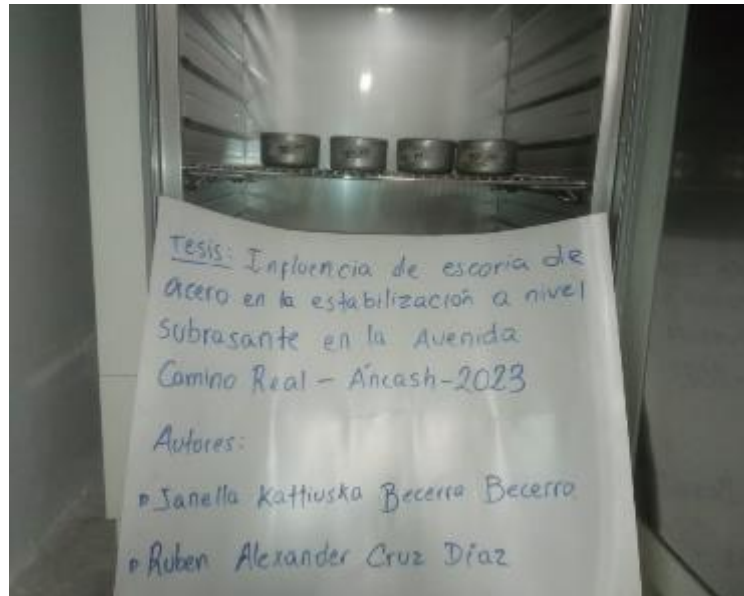 Tesis: Influencia de escoria de
acero en la estabilización a nivel
subrasante en la Avenida
Camino Real - Áncash-2023
Autores:
Janella Kattiuska Becerra Becerra
Ruben Alexander Cruz Díaz